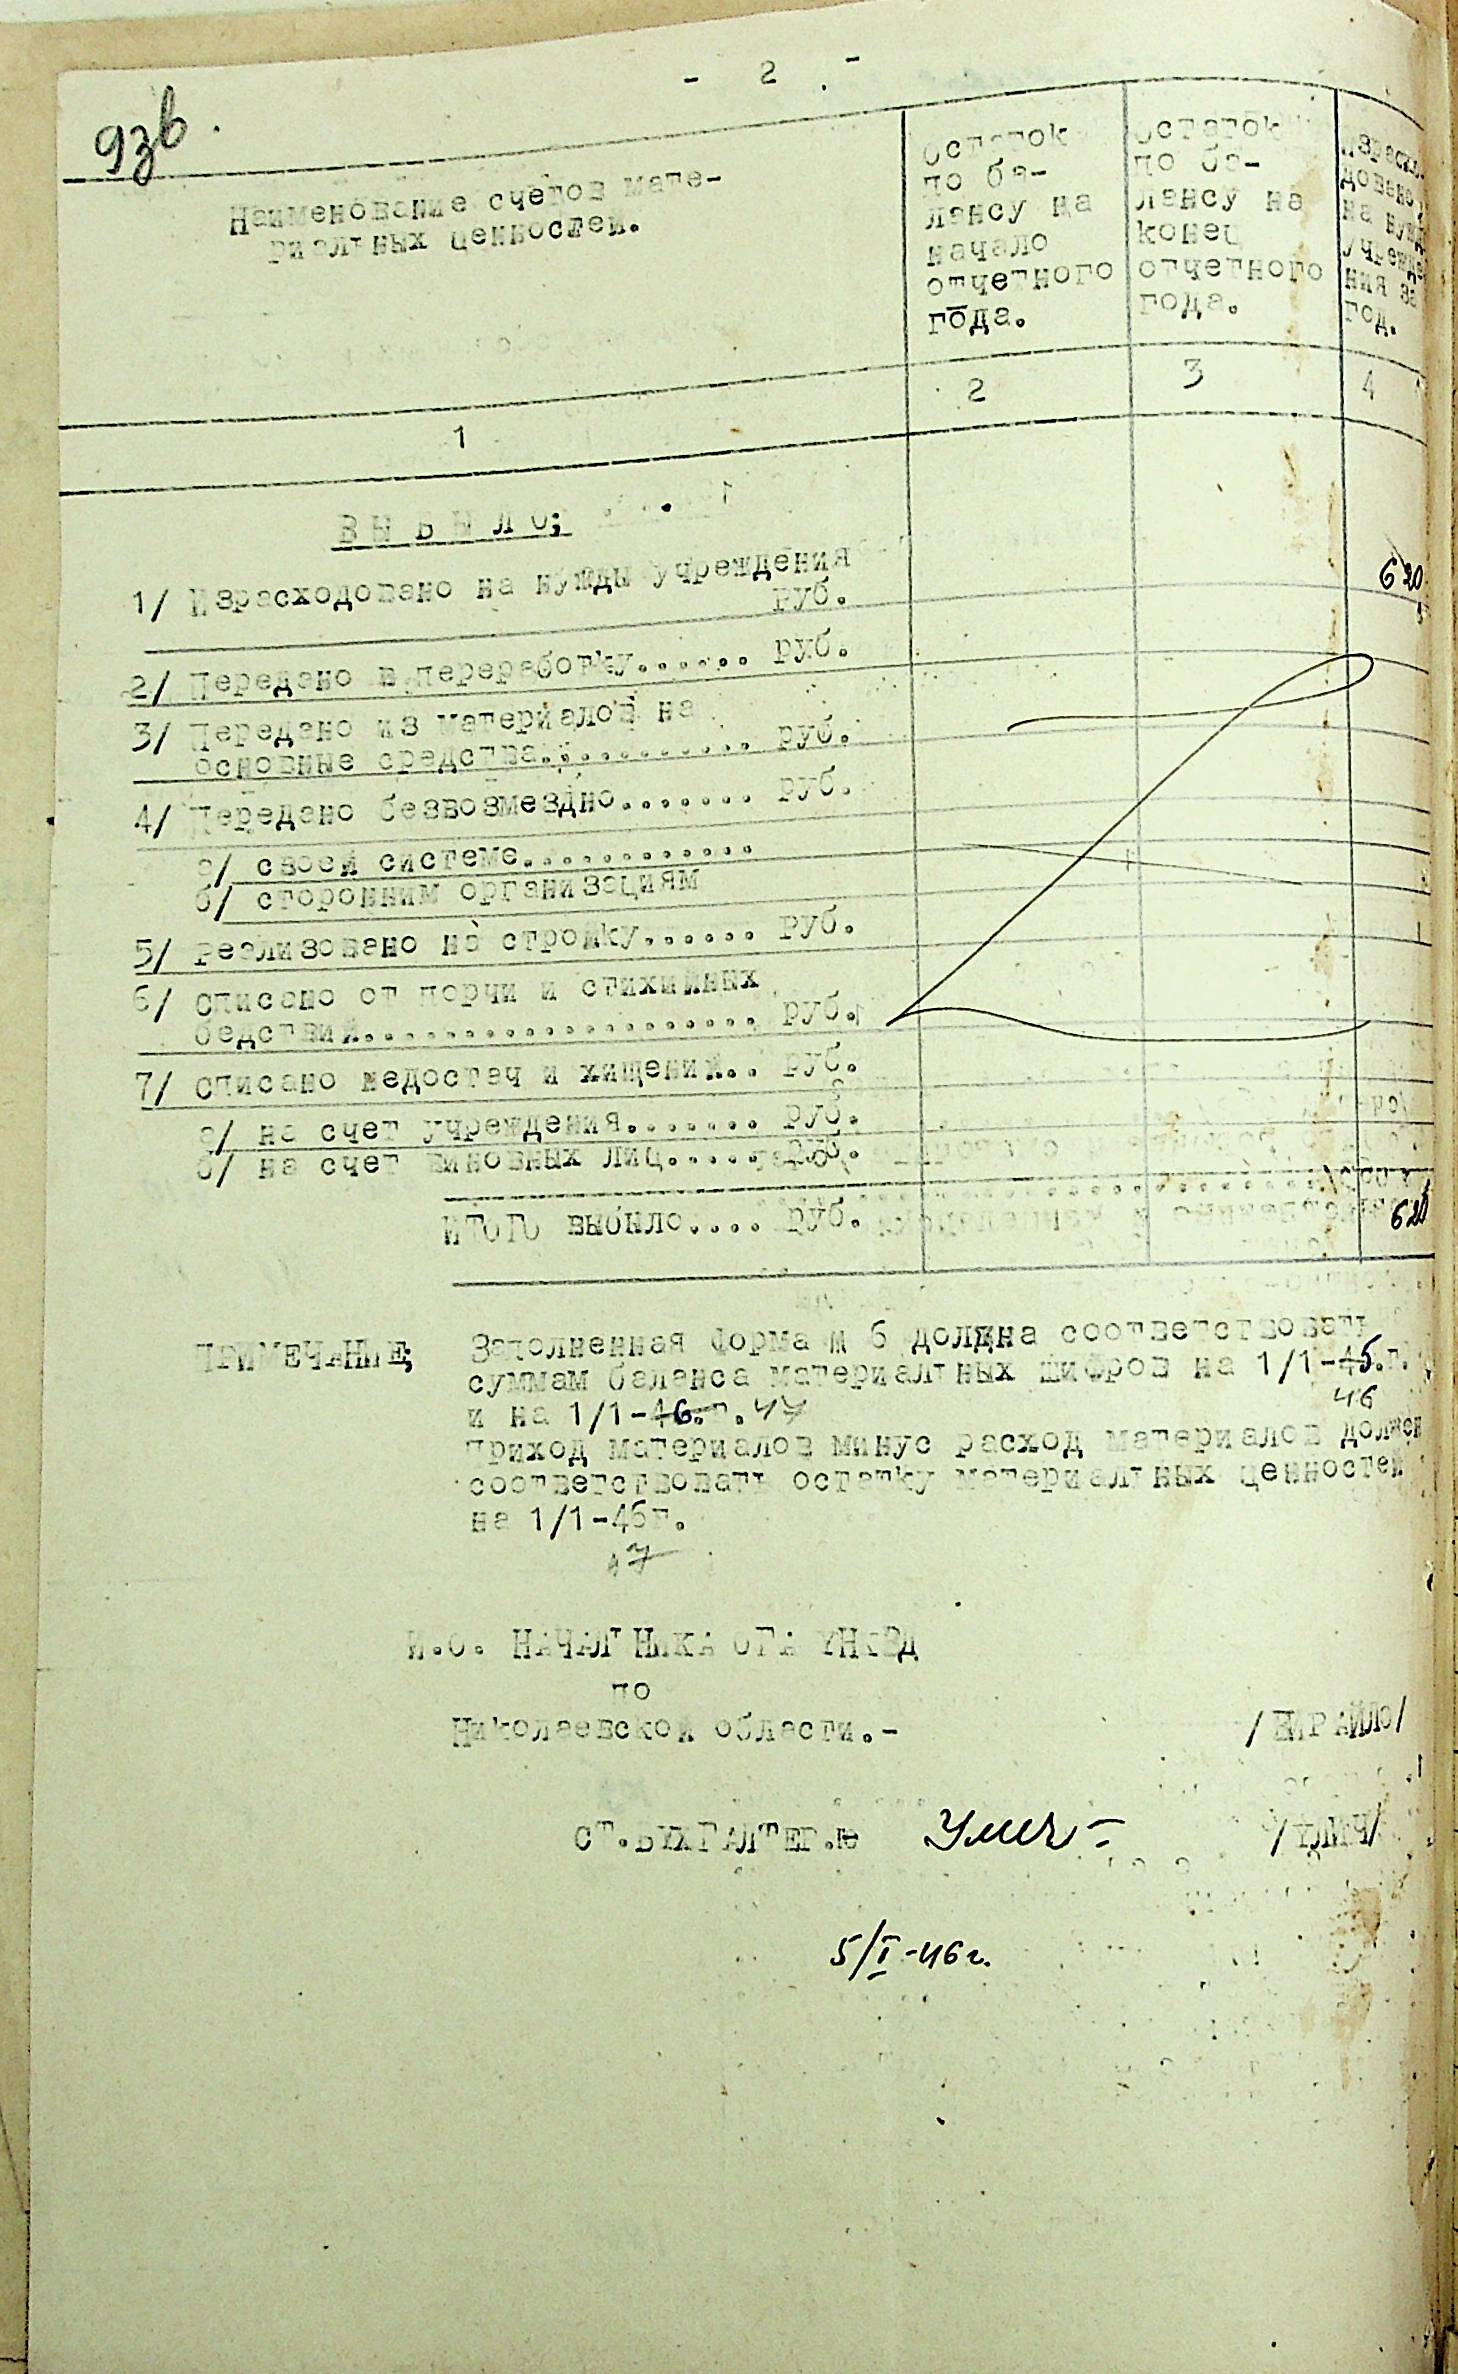 - 2 -
93в.
Наименование счетов мате-
риальных ценностей.
Остаток
по ба-
лансу на
начало
отчетного
года.
Остаток
по ба-
лансу на
конец
отчетного
года.
Израсхо
довано
на нужд
учрежде
ния за
год.
1
2
3
4
В Ы Б Ы Л О:
1/ Израсходовано на нужды учреждения
руб.
620
2/ Передано в переработку....... руб.
3/ Передано из материалов на
основные средства............ руб.
4/ Передано безвозмездно....... руб.
а/ своей системе.............
б/ сторонним организациям
5/ Реализовано на стройку...... руб.
6/ Списано от порчи и стихийных
бедствий..................... руб.
7/ Списано недостач и хищений.. руб.
а/ на счет учреждения....... руб.
б/ на счет виновных лиц..... руб.
ИТОГО выбыло.... руб.
620
ПРИМЕЧАНИЕ:
Заполненная форма № 6 должна соответствовать
суммам баланса материальных шифров на 1/1-45.г.
46
и на 1/1-46.г. 47
Приход материалов минус расход материалов должен
соответствовать остатку материальных ценностей
на 1/1-46г.
47
И.О. НАЧАЛЬНИКА ОГА УНКВД
по
Николаевской области.-
/ШИРАЙЛО/
СТ.БУХГАЛТЕР.
Улич-
/УЛИЧ/
5/I-46г.